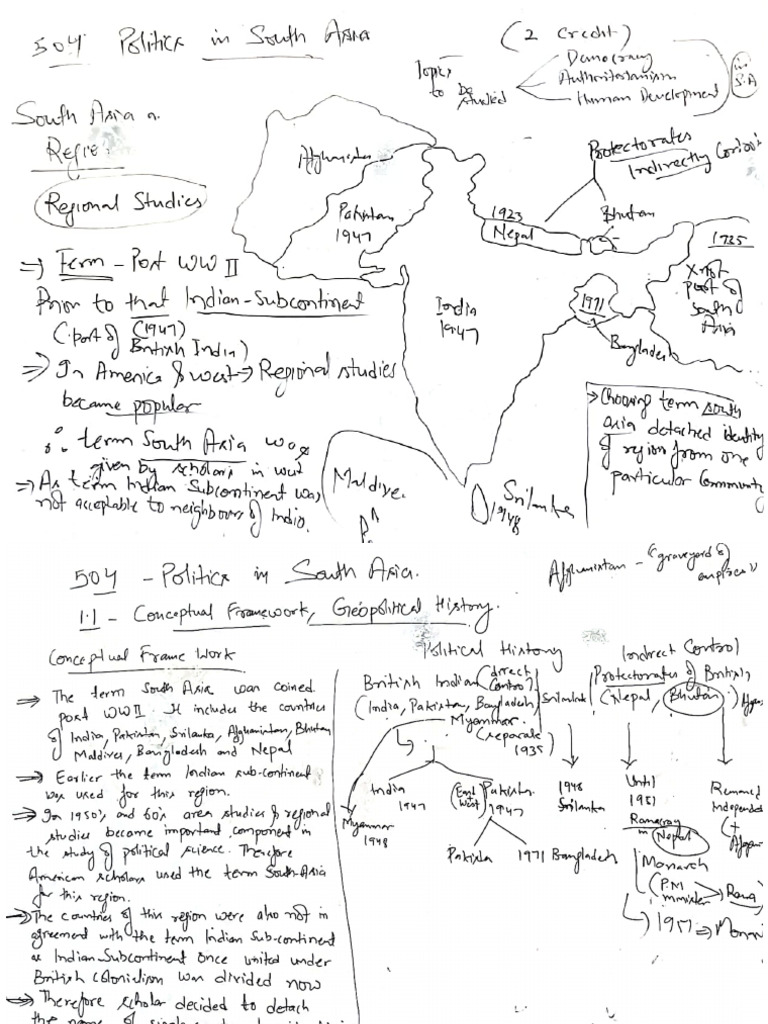 504 Politics in South Asia
(2 Credit)
Topics to be studied
Democracy
Authoritarianism
Human Development
in S.A
South Asia a
Regio
Regional Studies
Afghanistan
Pakistan
1947
Protectorates
Indirectly
1923
Nepal
Bhutan
India
1947
1971
Bangladesh
X not
part of
South
Asia
Maldive
Srilanka
1948
⇒ Term - Post WW II
Prior to that Indian-Subcontinent
(1947)
(part of British India)
⇒ In America & west → Regional studies
became popular
∴ term South Asia was
given by scholars in west
⇒ As term Indian Subcontinent was
not acceptable to neighbours of India.
→ Choosing term south
asia detached identity
of region from one
particular community
504 - Politics in South Asia.
Afghanistan - "graveyard of
empires"
1.1 - Conceptual Framework, Geopolitical History.
Conceptual Frame Work
⇒ The term South Asia was coined
post WW II. It includes the countries
of India, Pakistan, Srilanka, Afghanistan, Bhutan
Maldives, Bangladesh and Nepal
⇒ Earlier the term Indian sub-continent
was used for this region.
⇒ In 1950's and 60's area studies & regional
studies became important component in
the study of political science. Therefore
American scholars used the term South-Asia
for this region.
⇒ The countries of this region were also not in
agreement with the term Indian Sub-continent
as Indian Subcontinent once united under
British colonialism was divided now
⇒ Therefore scholar decided to detach
the name of
Political History
British Indian (direct control)
(India, Pakistan, Bangladesh)
Myanmar
(separate 1935)
Srilanka
Indirect Control
Protectorates of British
(Nepal, Bhutan)
India
1947
(East & West)
Pakistan
1947
Myanmar
1948
Pakista
1971 Bangladesh
1948
Srilanka
Until
1951
in Nepal
Monarch
(P.M
Rana
1951 ⇒
Remained
Independe